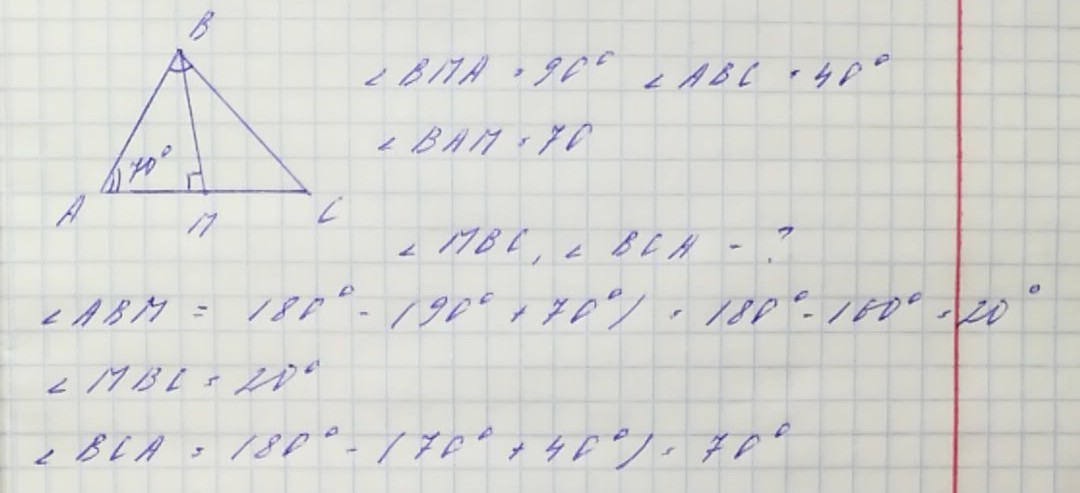 B
∠BMA = 90° ∠ABC = 40°
70°
∠BAM = 70
A M C
∠MBC, ∠BCA - ?
∠ABM = 180° - (90° + 70°) = 180° - 160° = 20°
∠MBC = 20°
∠BCA = 180° - (70° + 40°) = 70°